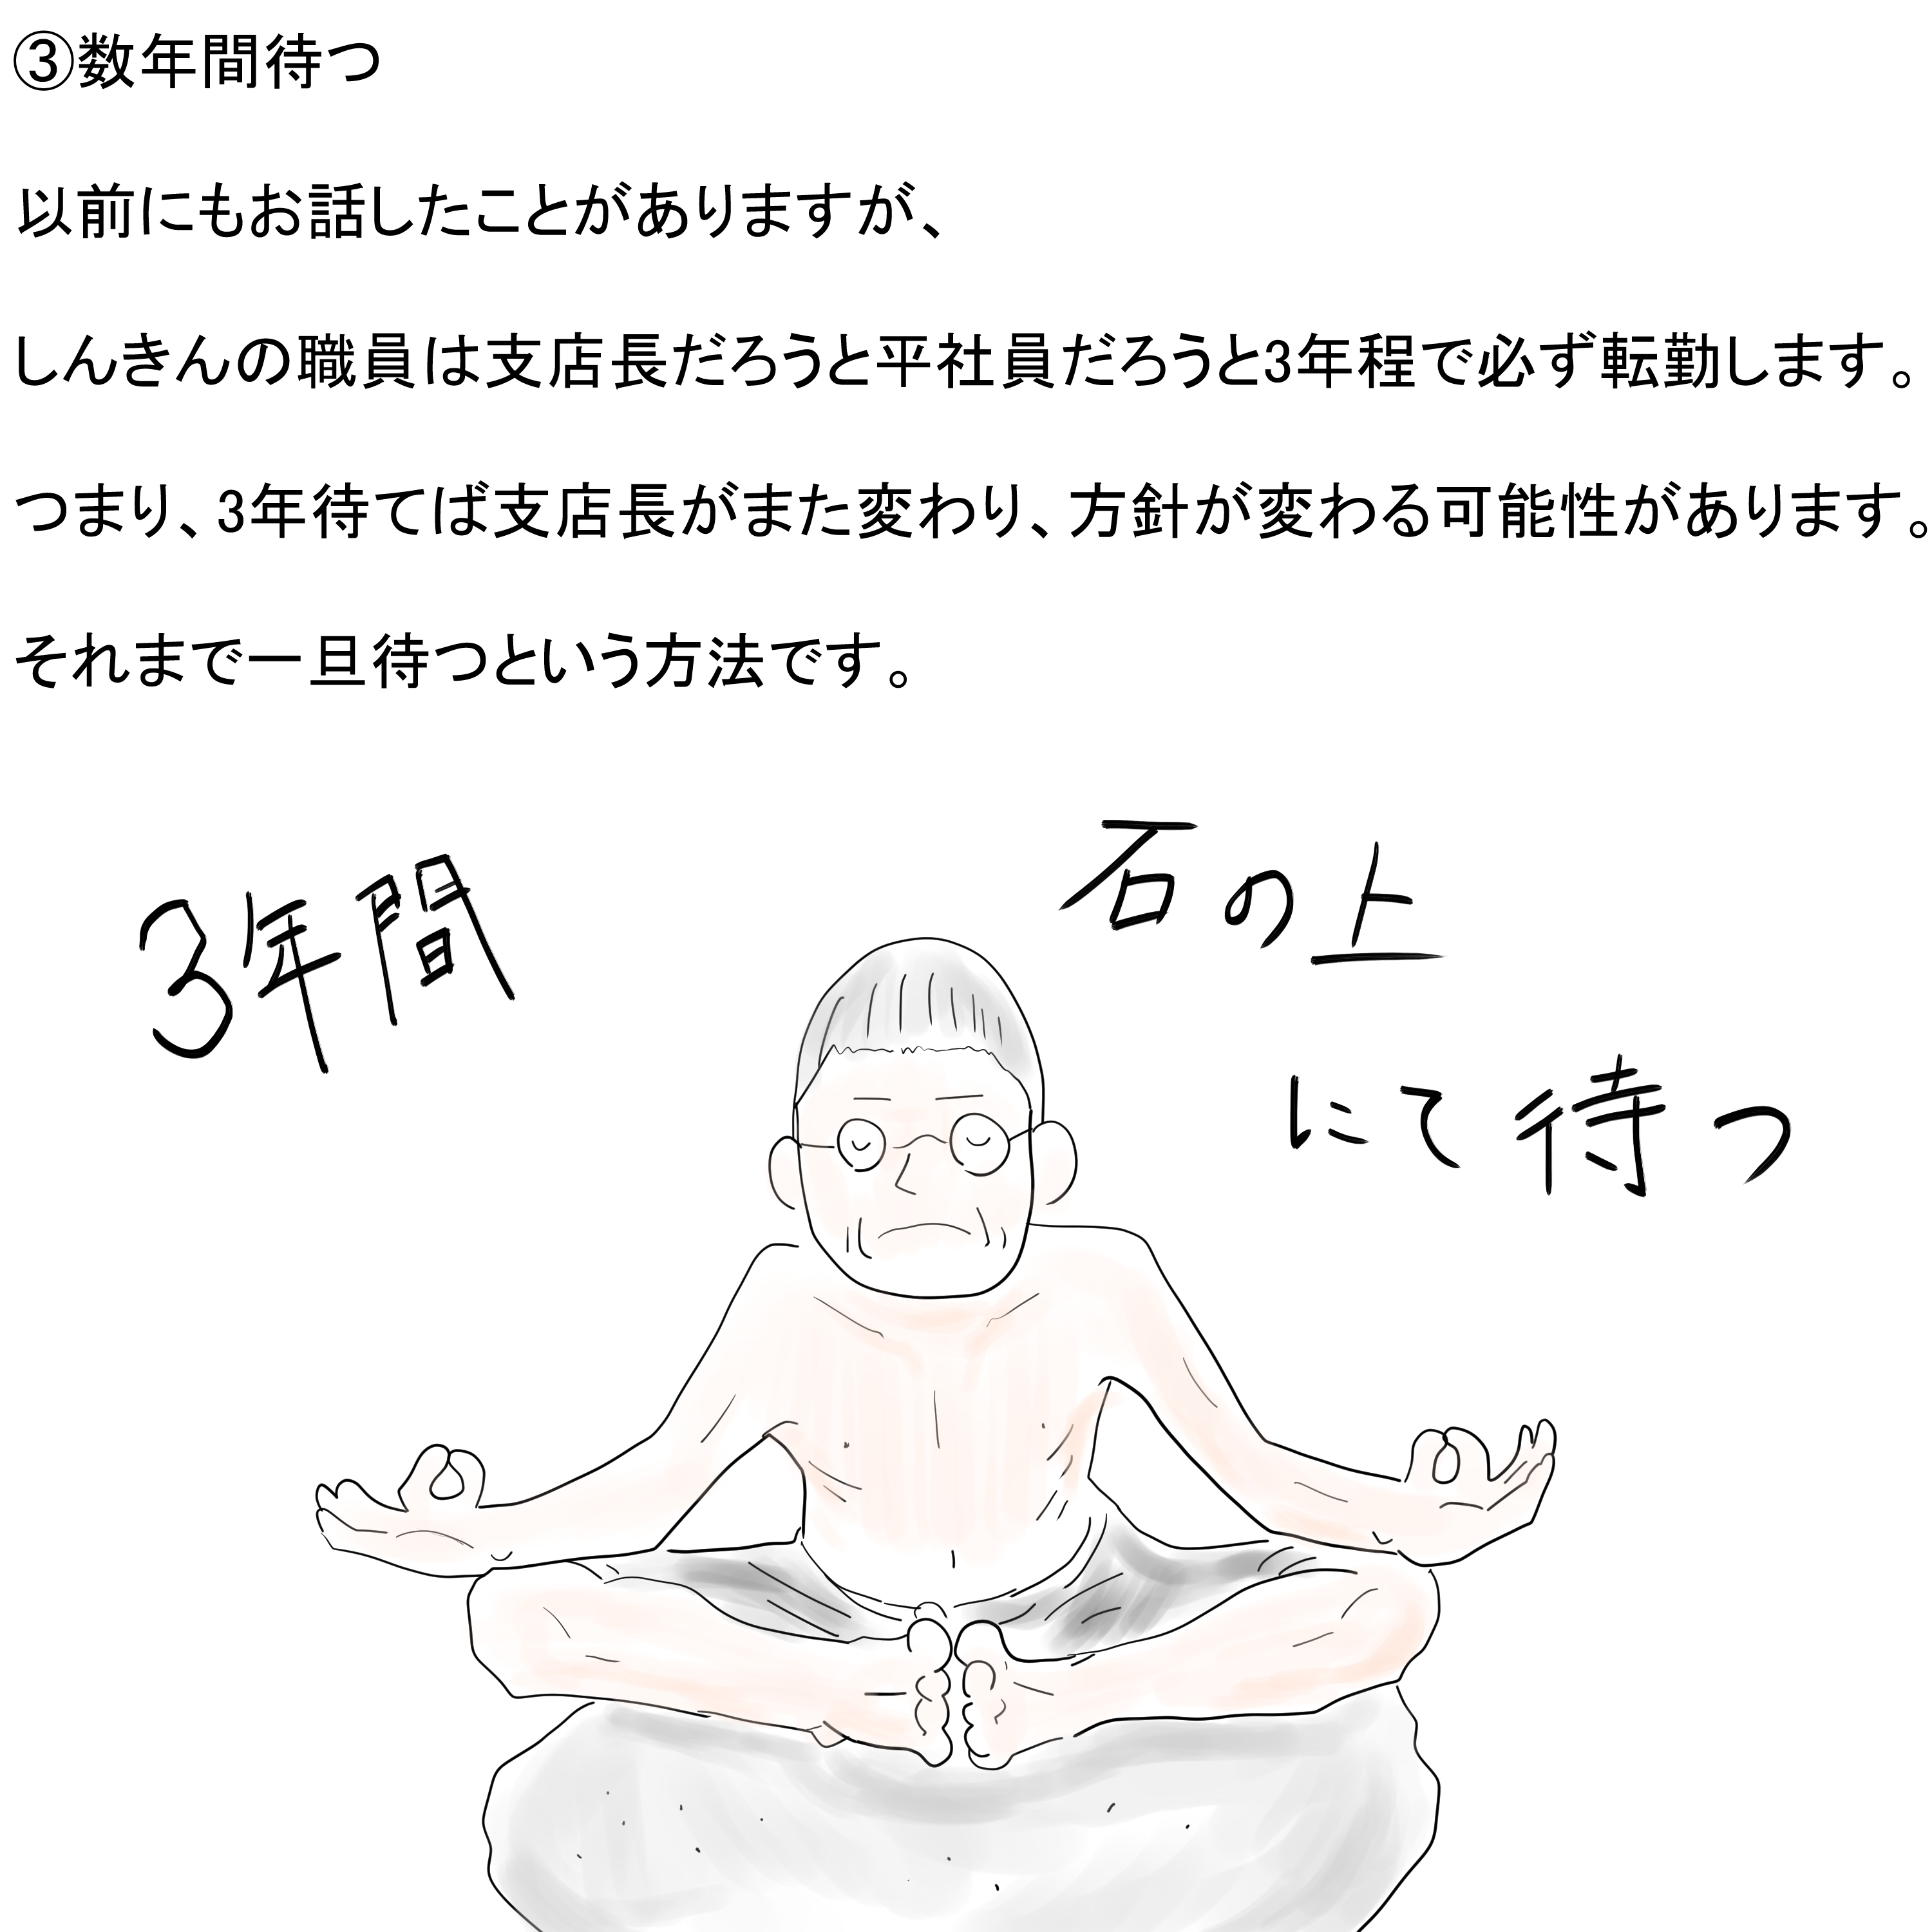 ③数年間待つ
以前にもお話したことがありますが、
しんきんの職員は支店長だろうと平社員だろうと3年程で必ず転勤します。
つまり、3年待てば支店長がまた変わり、方針が変わる可能性があります。
それまで一旦待つという方法です。
3年間
石の上
にて待つ